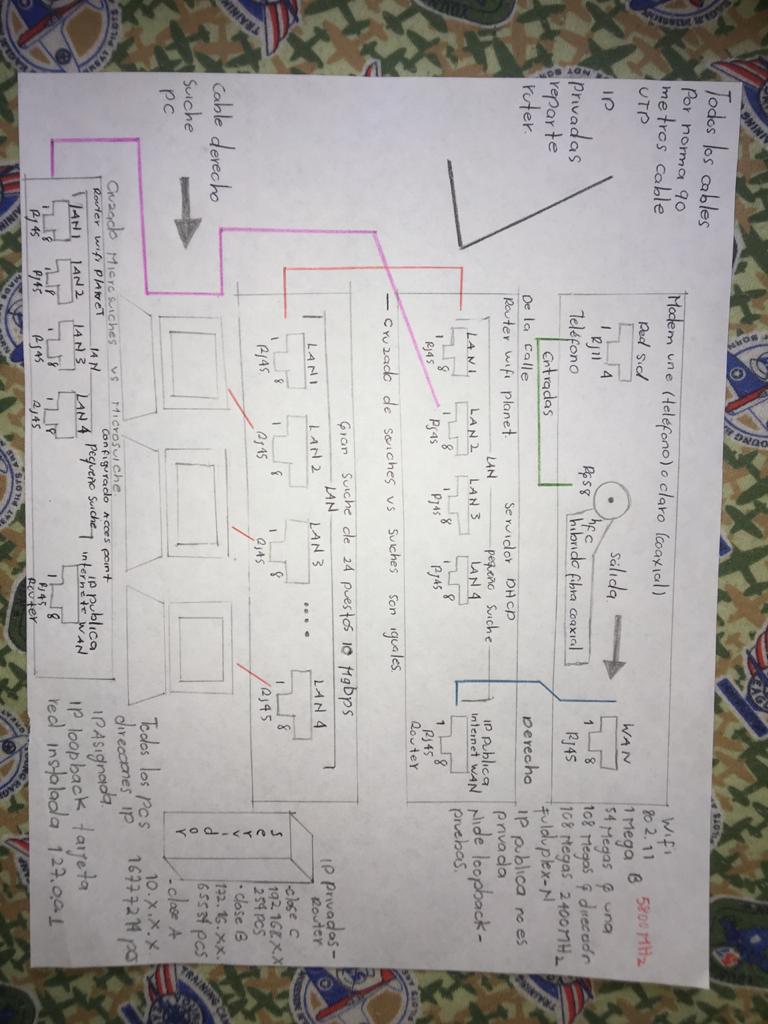 Todos los cables
Por norma 90
metros cable
UTP
IP
privadas
reparte
ruter.
Cable derecho
suiche
PC
Modem une (teléfono) o claro (coaxial)
Red sid
1 4
RJ11
Teléfono
Entradas
De la calle
RG58
hfc
hibrido fibra coaxial
sálida
WAN
1 8
Rj45
Derecho
Router wifi planet
Servidor DHCP
LAN
pequeño suiche
LAN1
1 8
Rj45
LAN2
1 8
Rj45
LAN3
1 8
Rj45
LAN4
1 8
Rj45
IP publica
Internet WAN
1 8
Rj45
Router
— Cruzado de suiches vs suiches son iguales.
Gran suiche de 24 puestos 10 Mgbps
LAN
LAN1
1 8
Rj45
LAN2
1 8
Rj45
LAN3
1 8
Rj45
....
LAN4
1 8
Rj45
Cruzado Microsuiches vs Microsuiche.
Configurado Acces point
Router wifi planet
LAN
pequeño suiche
LAN1
1 8
Rj45
LAN2
1 8
Rj45
LAN3
1 8
Rj45
LAN4
1 8
Rj45
IP publica
internet WAN
1 8
Rj45
Router
Wifi
802.11 5800MHz
1 Mega B
54 Megas g una
108 Megas g dirección
108 Megas 2400MHz
fulduplex-N
IP publica no es
privada
Ni de loopback-
pruebas.
IP privadas-
Router
-clase C
192.168.X.X
254 PCS
-clase B
172.16.XX.
65534 PCS
-clase A
10.X.X.X.
16777214 PS
Servidor
Todos los PCS
direcciones IP
IP Asignada.
IP loopback tarjeta
red instalada 127.0.0.1